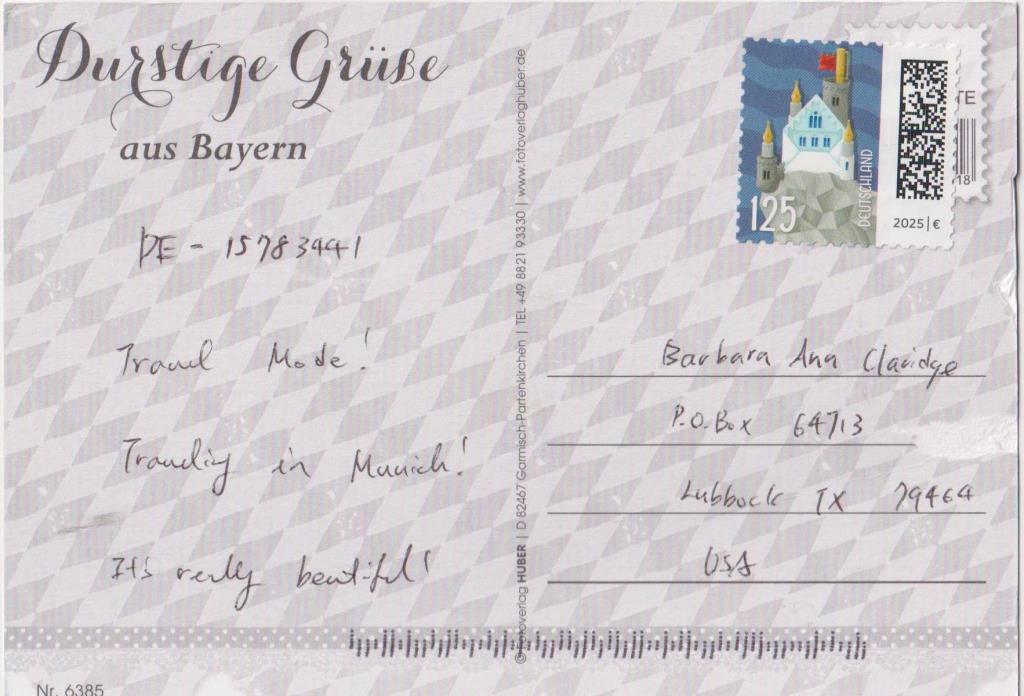 Durstige Grüße
aus Bayern
DE - 15783441
Travel Mode!
Traveling in Munich!
It's really beautiful!
Nr. 6385
© Fotoverlag HUBER | D 82467 Garmisch-Partenkirchen | TEL +49 8821 93330 | www.fotoverlaghuber.de
125
DEUTSCHLAND
2025|€
TE
18
Barbara Ann Claridge
P.O.Box 64713
Lubbock TX 79464
USA